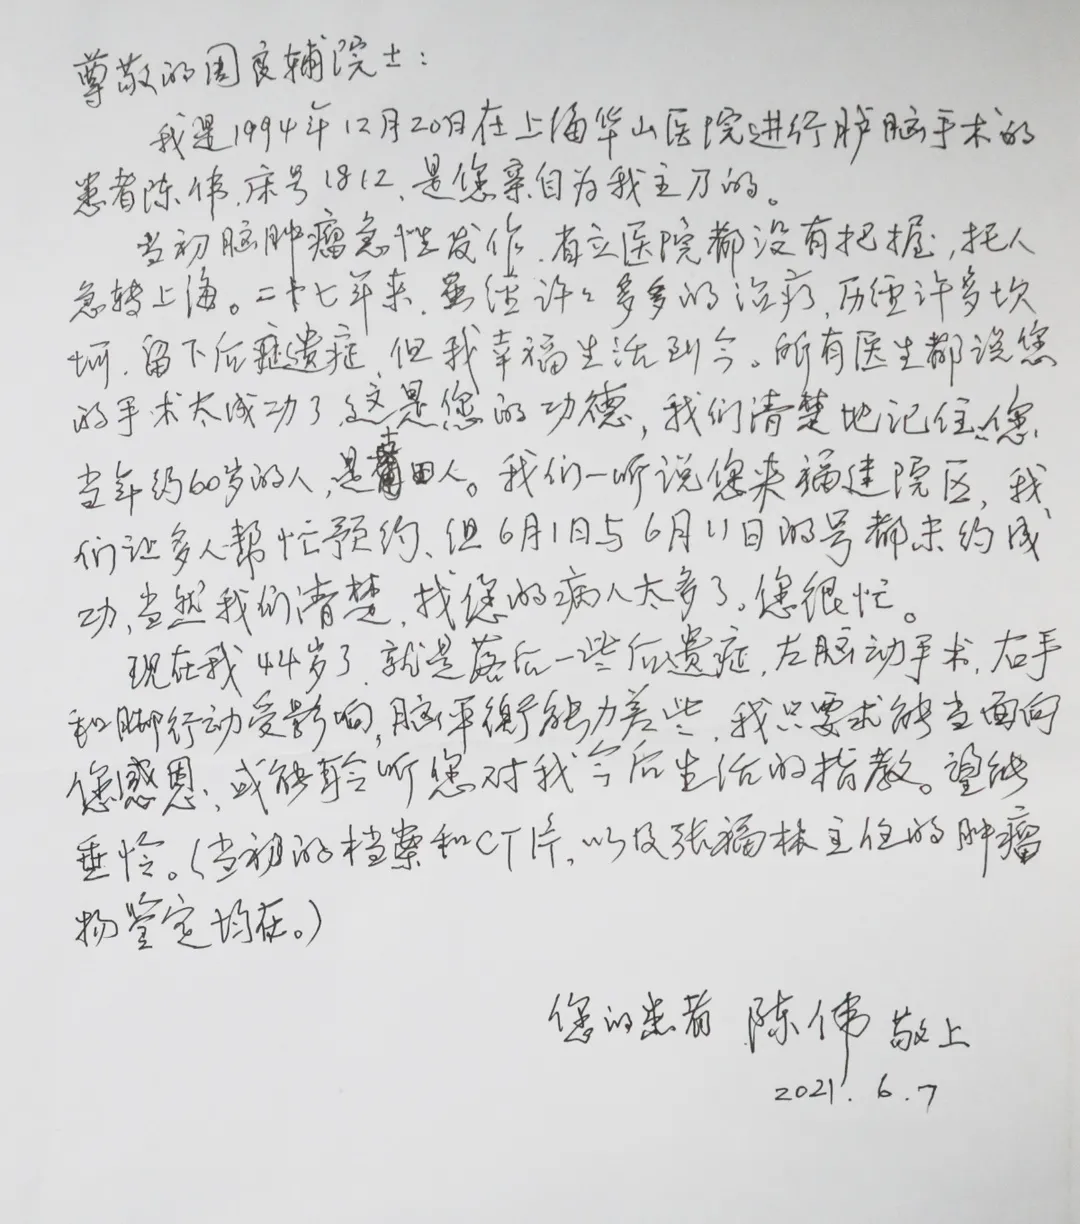 尊敬的周良辅院士：
我是1994年12月20日在上海华山医院进行胪脑手术的
患者陈伟.床号1812、是您亲自为我主刀的。
当初脑肿瘤急性发作.省立医院都没有把握,托人
急转上海。二十七年来.虽经许许多多的治疗,历经许多坎
坷.留下后症遗症.但我幸福生活到今。所有医生都说您
的手术太成功了,这是您的功德,我们清楚地记住,您
当年约60岁的人,是莆田人。我们一听说您来福建院区,我
们让多人帮忙预约、但6月1日与6月11日的号都未约成
功,当然我们清楚,找您的病人太多了。您很忙。
现在我44岁了.就是落后一些后遗症.左脑动手术,右手
和脚行动受影响,脑平衡能力差些,我只要求能当面向
您感恩,或能聆听您对我今后生活的指教。望能
垂怜。(当初的档案和CT片、以及张福林主任的肿瘤
物鉴定均在。)
您的患者 陈伟 敬上
2021.6.7